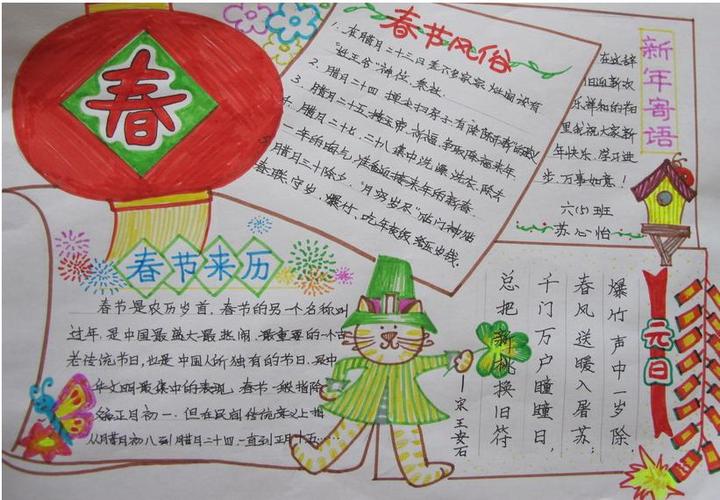 春
春节风俗
1.在腊月二十三日差不多家家灶间设有
"灶王爷"神位,祭灶.
2.腊月二十四掸尘扫房子有除陈布新的含义
3.腊月二十五接玉帝,祈福,争取降福来年
4.腊月二十七、二十八集中洗澡、洗衣,除去
一年的晦气,准备迎接来年的新春
腊月三十除夕"月穷岁尽"贴门神贴
春联、守岁、爆竹、吃年夜饭、给压岁钱.
新年寄语
在这辞
旧迎新欢
乐祥和的日
里我祝大家新
年快乐.学习进
步.万事如意!
六(5)班
苏心怡
春节来历
春节是农历岁首,春节的另一个名称叫
过年,是中国最盛大最热闹、最重要的一个古
老传统节日,也是中国人所独有的节日.是中
华文明最集中的表现.春节一般指除
夕和正月初一.但在民间传统意义上指
从腊月初八到腊月二十四一直到正月十五……
元日
爆竹声中一岁除,
春风送暖入屠苏;
千门万户曈曈日,
总把新桃换旧符
——宋 王安石